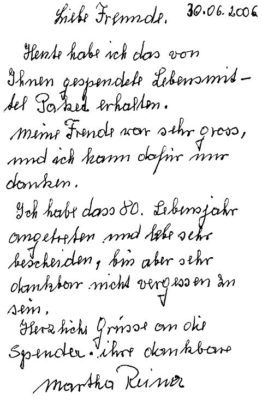 Liebe Freunde. 30.06.2006
Heute habe ich das von
Ihnen gespendete Lebensmit-
tel Paket erhalten.
Meine Freude war sehr gross,
und ich kann dafür nur
danken.
Ich habe dass 80. Lebensjahr
angetreten und lebe sehr
bescheiden, bin aber sehr
dankbar nicht vergessen zu
sein.
Herzliche Grüsse an die
Spender. ihre dankbare
Martha Reiner